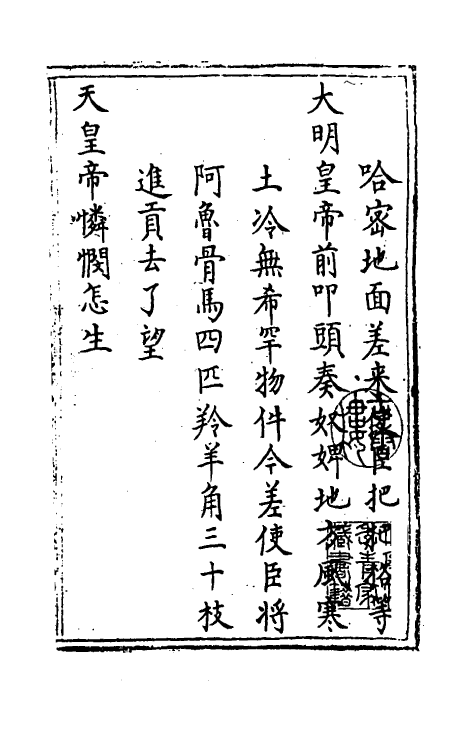 哈密地面差来使臣把等
大明皇帝前叩頭奏奴婢地方風寒
土冷無希罕物件今差使臣将
阿魯骨馬四匹羚羊角三十枝
進貢去了望
天皇帝憐憫怎生